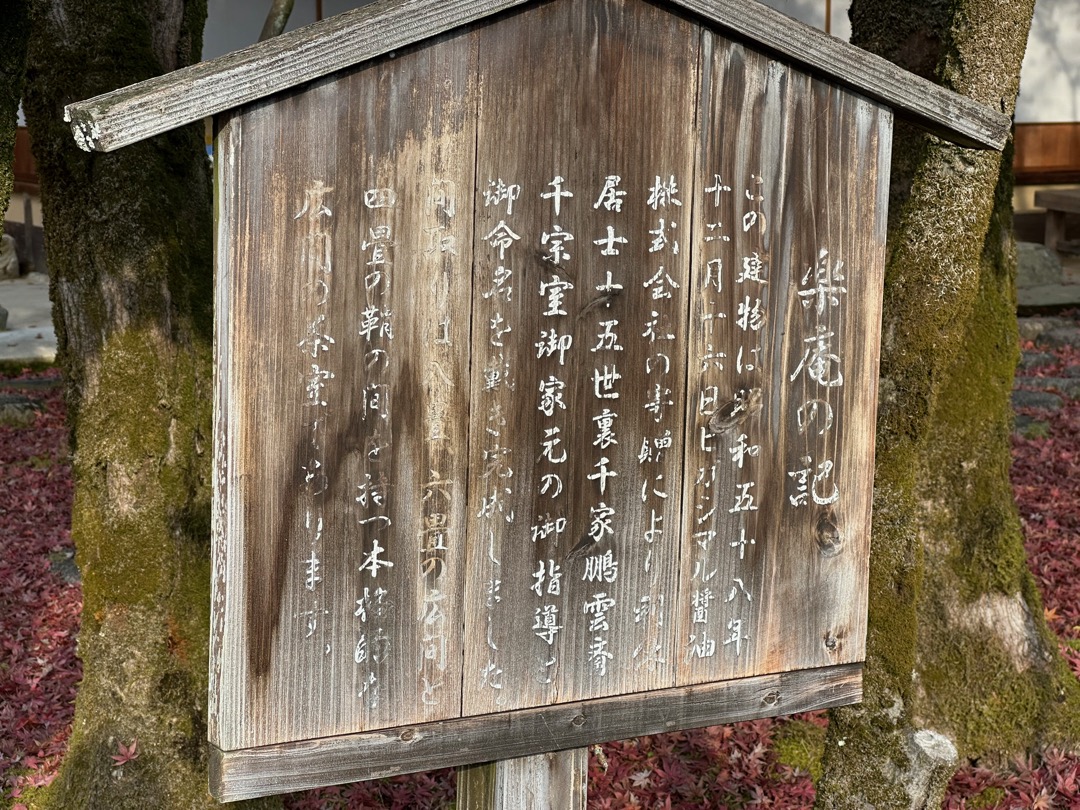 楽庵の記
この建物は昭和五十八年
十二月十六日ヒガシマル醤油
株式会社の寄贈により利休
居士十五世裏千家鵬雲斎
千宗室御家元の御指導と
御命名を戴き完成しました
間取りは八畳 六畳の広間と
四畳の鞘の間を持つ本格的な
広間の茶室であります。